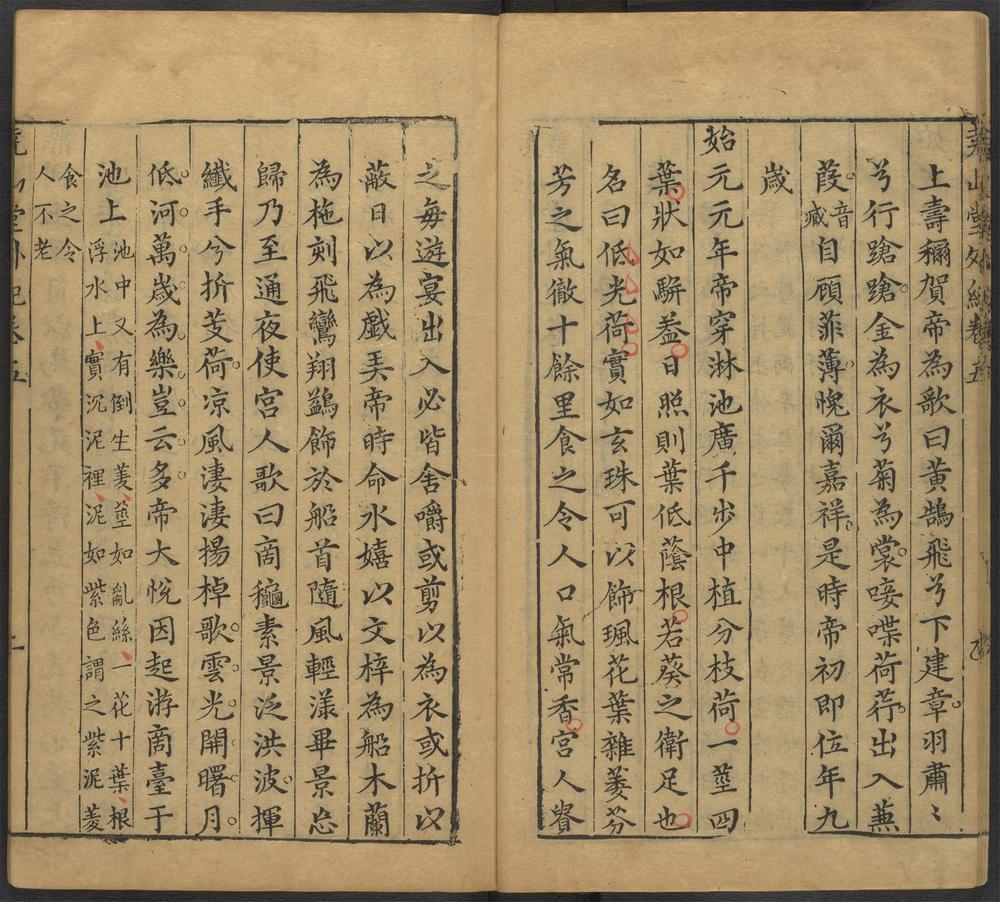 堯山堂外紀卷五
上壽稱賀帝為歌曰黃鵠飛兮下建章羽肅〻
兮行蹌蹌金為衣兮菊為裳唼喋荷荇出入蒹
葭音臧自顧菲薄愧爾嘉祥是時帝初即位年九
歲
始元元年帝穿淋池廣千步中植分枝荷一莖四
葉狀如駢葢日照則葉低蔭根若葵之衛足也
名曰低光荷實如玄珠可以飾珮花葉雜萎芬
芳之氣徹十餘里食之令人口氣常香宮人貴
之每遊宴出入必皆含嚼或剪以為衣或折以
蔽日以為戲弄帝時命水嬉以文梓為船木蘭
為柂刻飛鸞翔鷁飾於船首隨風輕漾畢景忘
歸乃至通夜使宮人歌曰商穐素景泛洪波揮
纖手兮折芰荷涼風淒淒揚棹歌雲光開曙月
低河萬歲為樂豈云多帝大悅因起游商臺于
池上池中又有倒生菱莖如亂絲一花十葉根
浮水上實沉泥裡泥如紫色謂之紫泥菱
食之令
人不老
堯山堂外紀卷五